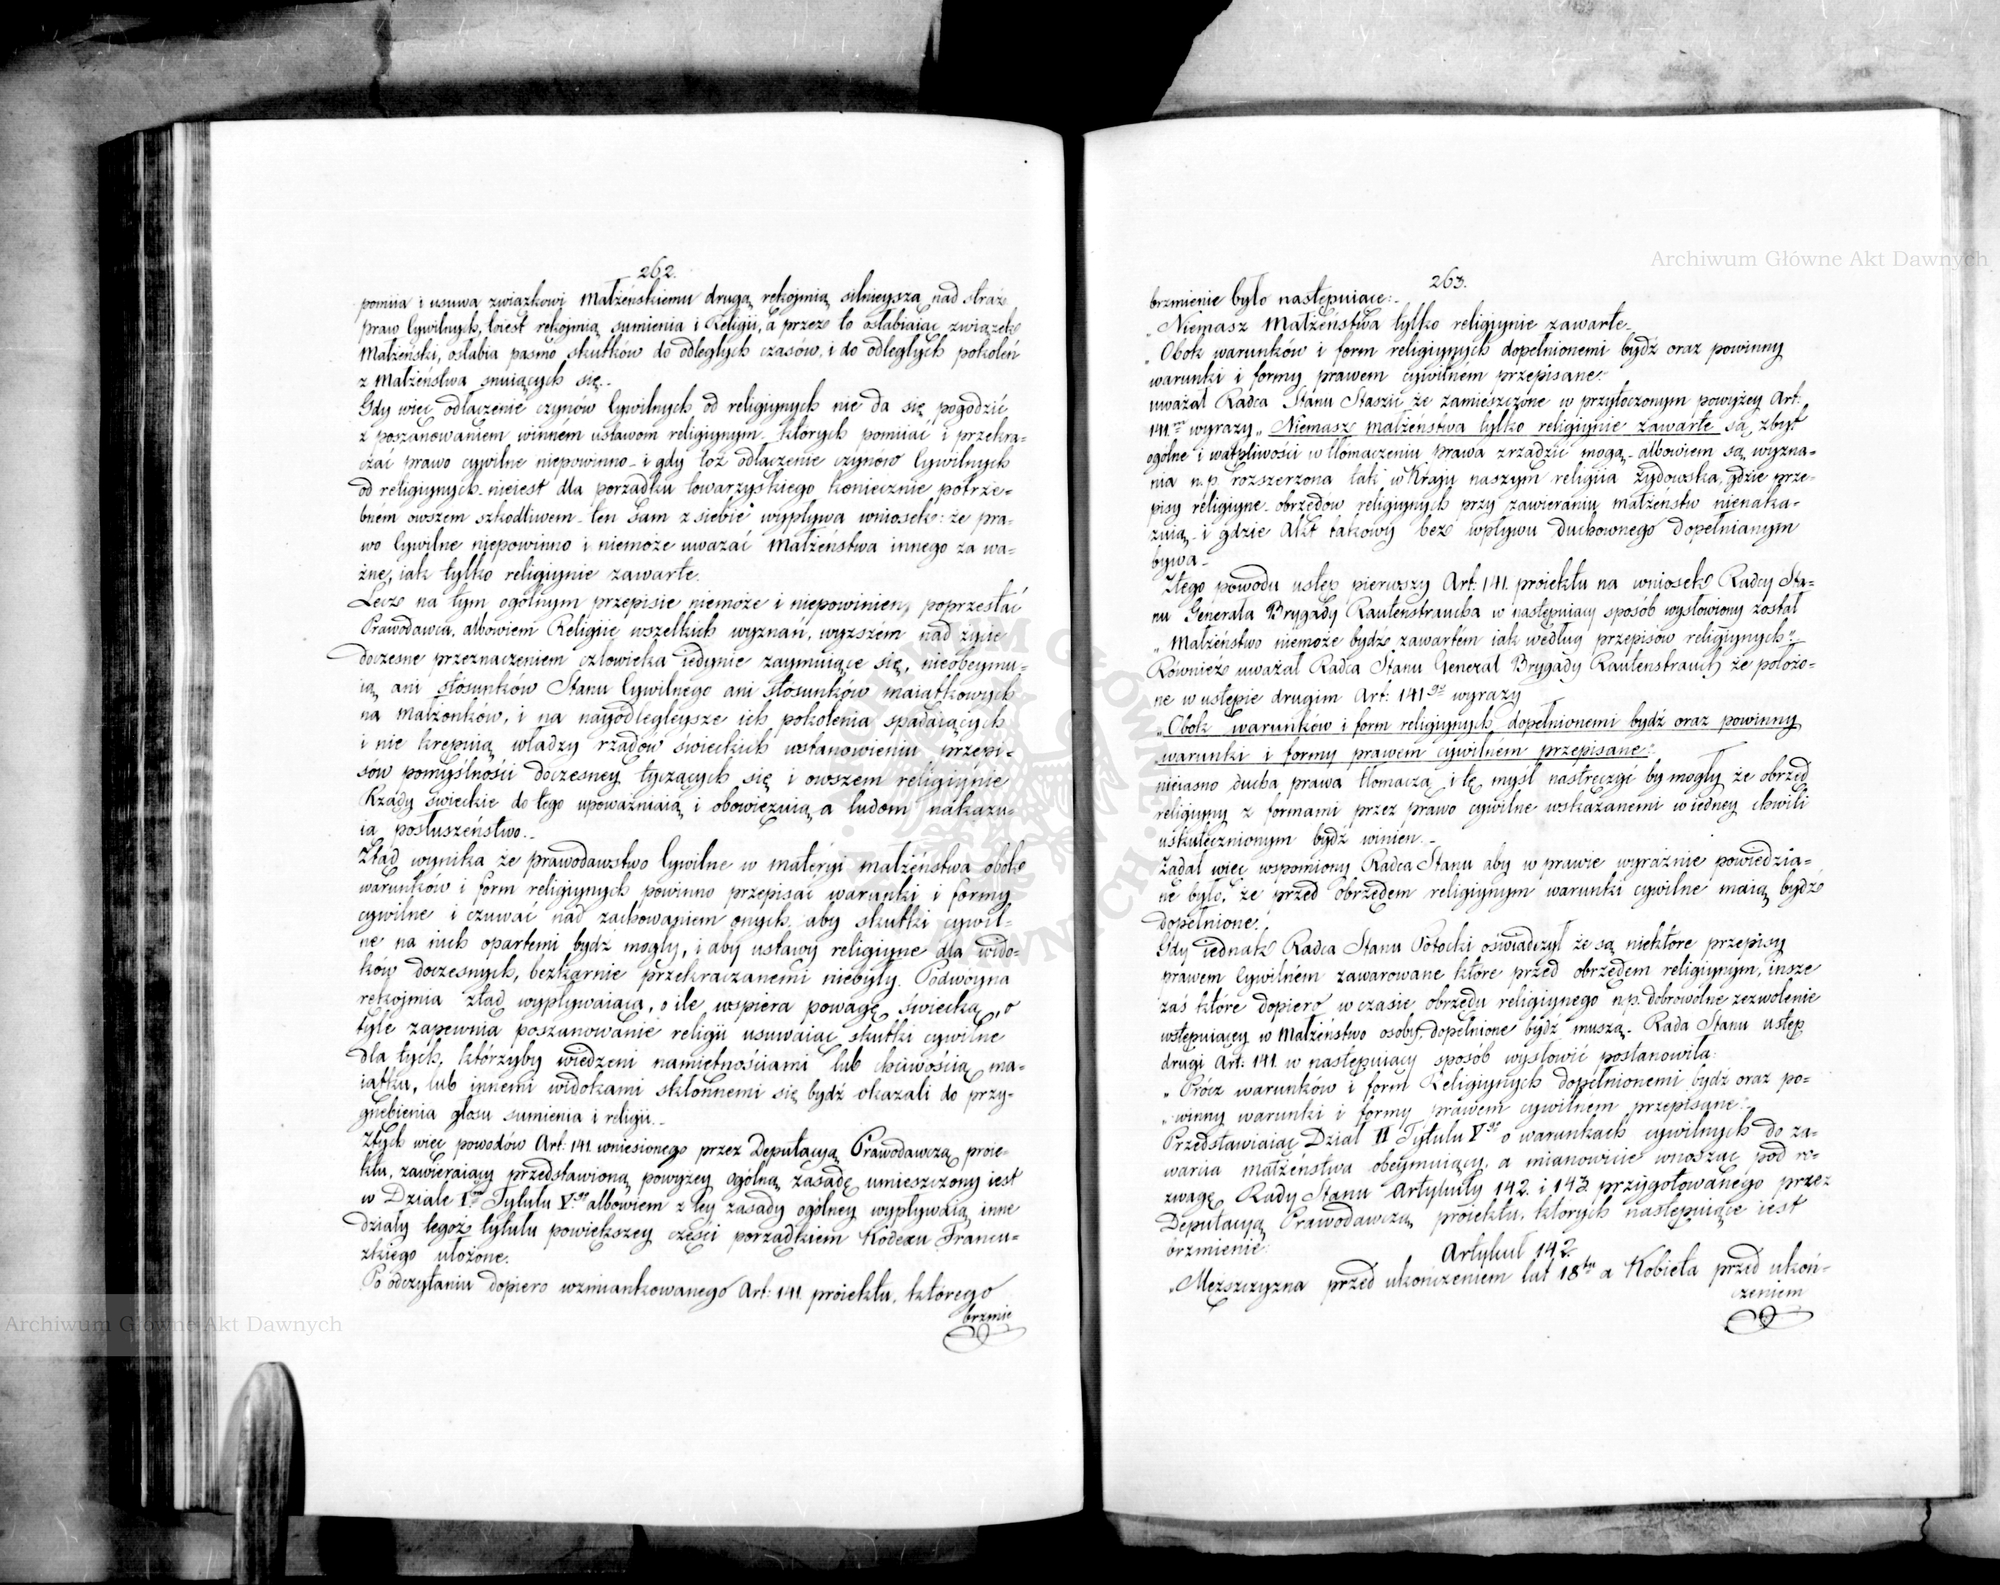 262.
pomiia i usuwa związkowi Małżeńskiemu drugą rękoymią silnieyszą nad straż
praw Cywilnych, toiest rękoymią sumienia i Religii, a przez to osłabiaiąc związek
Małżeński, osłabia pasmo skutków do odległych czasów, i do odległych pokoleń
z Małżeństwa snuiących się.-
Gdy więc odłączenie czynów Cywilnych od religiynych nie da się pogodzić
z poszanowaniem winnem ustawom religiynym, których pomiiać i przekra-
czać prawo cywilne niepowinno - i gdy toż odłączenie czynów Cywilnych
od religiynych nieiest dla porządku towarzyskiego koniecznie potrze-
bném owszem szkodliwem - ten sam z siebie wypływa wniosek: że pra-
wo Cywilne niepowinno i niemoże uważać Małżeństwa innego za wa-
żne, iak tylko religiynie zawarte.
Lecz na tym ogólnym przepisie niemoże i niepowinien poprzestać
Prawodawca, albowiem Religiie wszelkich wyznań, wyższém nad życie
doczesne przeznaczeniem człowieka iedynie zaymuiące się, nieobeymu-
ią ani stosunków Stanu Cywilnego ani stosunków maiątkowych
na małżonków, i na nayodlegleysze ich pokolenia spadaiących
i nie krępuią władzy rządów świeckich ustanowieniu przepi-
sów pomyślności doczesney tyczących się i owszem religiynie
Rządy świeckie do tego upoważniaią i obowięzuią a ludom nakazu-
ią posłuszeństwo.-
Ztąd wynika że prawodawstwo Cywilne w materyi małżeństwa obok
warunków i form religiynych powinno przepisać warunki i formy
cywilne i czuwać nad zachowaniem onych, aby skutki cywil-
ne na nich opartemi bydź mogły, i aby ustawy religiyne dla wido-
ków doczesnych, bezkarnie przekraczanemi niebyły. Podwóyna
rękoymia ztąd wypływaiąca, o ile wspiera powagę świecką, o
tyle zapewnia poszanowanie religii usuwaiąc skutki cywilne
dla tych, którzyby wiedzeni namiętnościami lub chciwością ma-
iątku, lub innemi widokami skłonnemi się bydź okazali do przy-
gnębienia głosu sumienia i religii.-
Ztych więc powodów Art: 141. wniesionego przez Deputacyą Prawodawczą proie-
ktu, zawieraiący przedstawioną powyżey ogólną zasadę umieszczony iest
w Dziale I.ym Tytułu V.go albowiem z tey zasady ogólney wypływaią inne
działy tegoż tytułu powiększey części porządkiem Kodexu Francu-
zkiego ułożone.
Po odczytaniu dopiero wzmiankowanego Art: 141. proiektu, którego
brzmie
263.
brzmienie było następuiące:-
„Niemasz Małżeństwa tylko religiynie zawarte-
„Obok warunków i form religiynych dopełnionemi bydź oraz powinny
warunki i formy prawem cywilném przepisane."
uważał Radca Stanu Staszic że zamieszczone w przytoczonym powyżey Art:
141.ym wyrazy „Niemasz małżeństwa tylko religiynie zawarte są zbyt
ogólne i wątpliwości w tłomaczeniu prawa zrządzić mogą - albowiem są wyzna-
nia n.p. rozszerzona tak w Kraju naszym religiia żydowska, gdzie prze-
pisy religiyne obrzędów religiynych przy zawieraniu małżeństw nienaka-
zuią - i gdzie Akt takowy bez wpływu Duchownego dopełnianym
bywa -
Ztego powodu ustęp pierwszy Art: 141. proiektu na wniosek Radcy Sta-
nu Generała Brygady Rautenstraucha w następuiący sposób wysłowiony został
„Małżeństwo niemoże bydź zawartem iak według przepisów religiynych"-
Również uważał Radca Stanu Generał Brygady Rautenstrauch że położo-
ne w ustępie drugim Art: 141go wyrazy
„Obok warunków i form religiynych dopełnionemi bydź oraz powinny
„warunki i formy prawem cywilném przepisane"-
nieiasno ducha prawa tłomaczą i tę myśl nastręczyć by mogły że obrzęd
religiyny z formami przez prawo cywilne wskazanemi w iedney chwili
uskutecznionym bydź winien.-
Żądał więc wspomiony Radca Stanu aby w prawie wyraźnie powiedzia-
ne było, że przed obrzędem religiynym warunki cywilne maią bydź
dopełnione.
Gdy iednak Radca Stanu Potocki oświadczył że są niektóre przepisy
prawem Cywilném zawarowane które przed obrzędem religiynym, insze
zaś które dopiero w czasie obrzędu religiynego n.p. dobrowolne zezwolenie
wstępuiącey w Małżeństwo osoby, dopełnione bydź muszą - Rada Stanu ustęp
drugi Art: 141. w następuiący sposób wysłowić postanowiła:
„Prócz warunków i form Religiynych dopełnionemi bydź oraz po-
„winny warunki i formy prawem cywilném przepisane"-
Przedstawiaiąc Dział II Tytułu Vgo o warunkach cywilnych do za-
warcia małżeństwa obeymuiący, a mianowicie wnosząc pod ro-
zwagę Rady Stanu Artykuły 142. i 143. przygotowanego przez
Deputacyą Prawodawczą proiektu, których następuiące iest
brzmienie:
Artykuł 142.
„Męższczyzna przed ukończeniem lat 18tu a Kobieta przed ukoń-
czeniem
Archiwum Główne Akt Dawnych
Archiwum Główne Akt Dawnych
ARCHIWUM GŁÓWNE AKT DAWNYCH